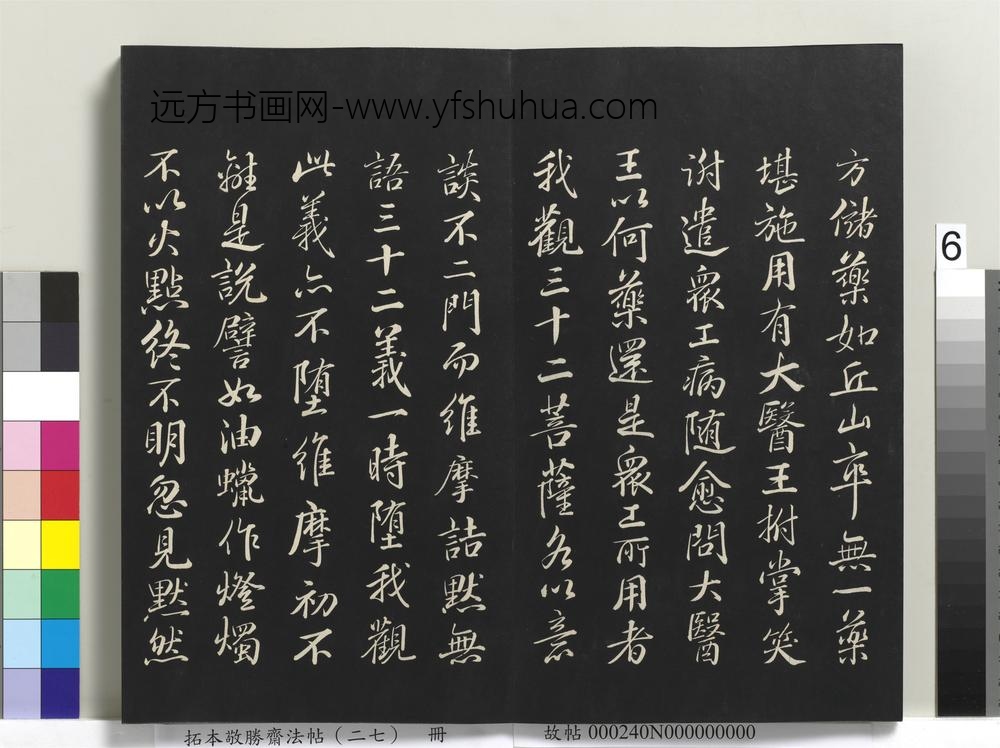 远方书画网-www.yfshuhua.com
方儲藥如丘山卒無一藥
堪施用有大醫王拊掌笑
謝遣衆工病随愈問大醫
王以何藥還是衆工所用者
我觀三十二菩薩各以意
談不二門而維摩詰默無
語三十二義一時堕我觀
此義亦不堕維摩初不
離是說譬如油蠟作燈燭
不以火點終不明忽見默然
6
拓本敬勝齋法帖（二七） 冊
故帖 000240N000000000